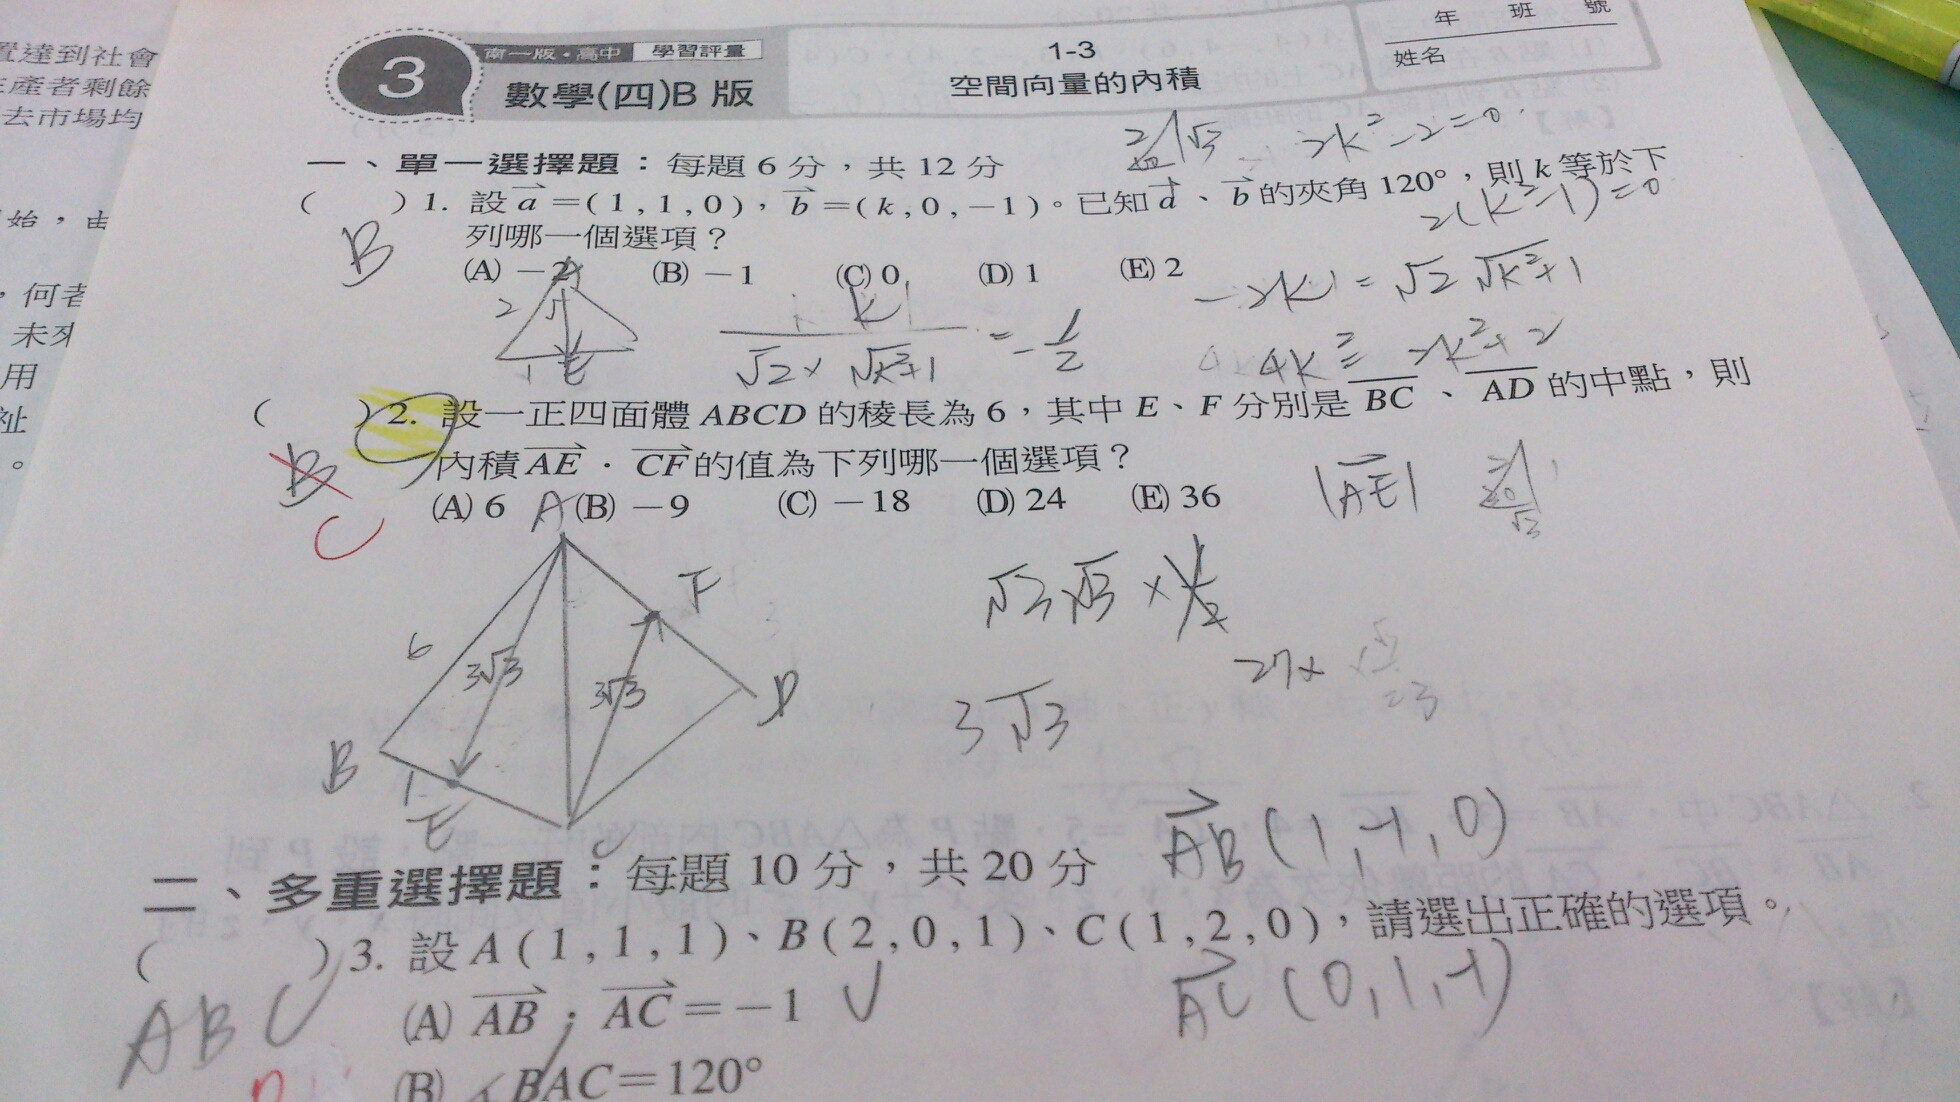 置達到社會
產者剩餘
去市場均
始，由
，何者
未來
用
祉
。
年 班 號
姓名
3
南一版・高中 學習評量
數學(四)B 版
1-3
空間向量的內積
2k²-2=0
2(k²-1)=0
一、單一選擇題：每題 6 分，共 12 分
( ) 1. 設 a =(1,1,0)，b =(k,0,-1)。已知 a、b 的夾角 120°，則 k 等於下
列哪一個選項？
B
(A) -2 (B) -1 (C) 0 (D) 1 (E) 2
k / √2 × √k²+1 = -1/2
-2k = √2 √k²+1
4k² = 2k²+2
( ) 2. 設一正四面體 ABCD 的稜長為 6，其中 E、F 分別是 BC、AD 的中點，則
內積 AE · CF 的值為下列哪一個選項？
B
C
(A) 6 (B) -9 (C) -18 (D) 24 (E) 36
|AE|
A
F
6
3√3
3√3
D
B
E
C
3√3
27×
AB (1,-1,0)
二、多重選擇題：每題 10 分，共 20 分
( ) 3. 設 A(1,1,1)、B(2,0,1)、C(1,2,0)，請選出正確的選項。
ABC
(A) AB · AC = -1
AC (0,1,-1)
(B) ∠BAC=120°